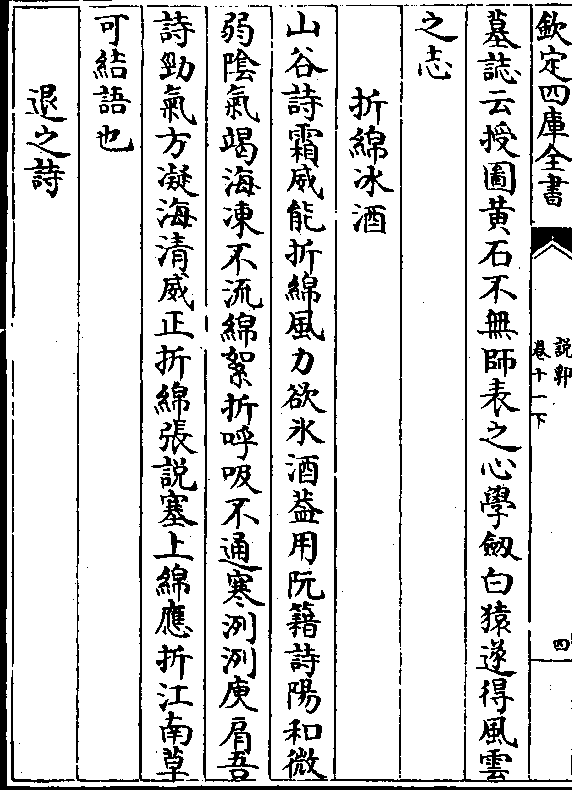 欽定四庫全書
說郛
卷十一下
四
墓誌云授圖黃石不無師表之心學劔白猿遂得風雲
之志
折綿冰酒
山谷詩霜威能折綿風力欲氷酒葢用阮籍詩陽和微
弱陰氣竭海凍不流綿絮折呼吸不通寒洌洌庾肩吾
詩勁氣方凝海清威正折綿張說塞上綿應折江南草
可結語也
退之詩